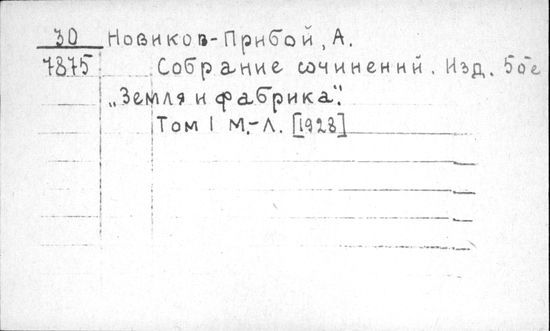 30 Новиков-Прибой, А.
7875 Собрание сочинений. Изд. 5ое
„Земля и фабрика“.
Том I М.-Л. [1928]